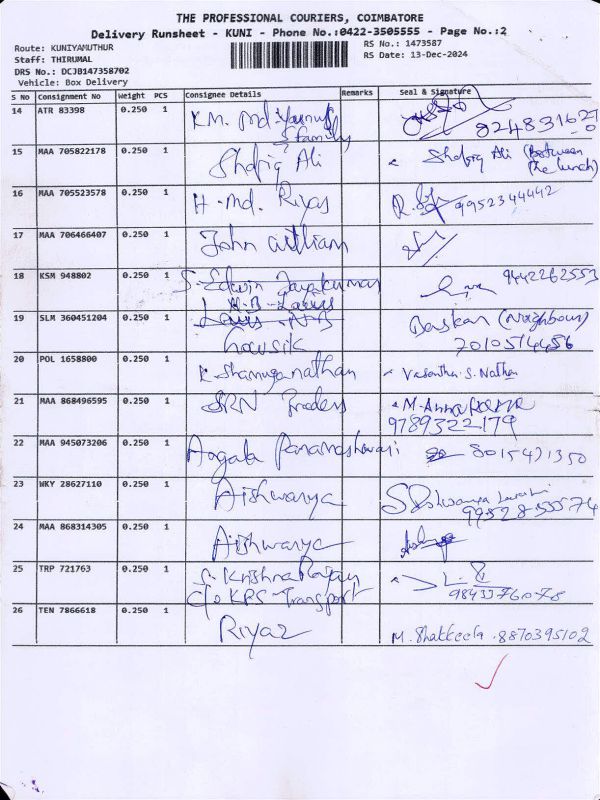 THE PROFESSIONAL COURIERS, COIMBATORE
Delivery Runsheet - KUNI - Phone No.:0422-3505555 - Page No.:2
Route: KUNIYAMUTHUR
Staff: THIRUMAL
DRS No.: DCJB147358702
Vehicle: Box Delivery
RS No.: 1473587
RS Date: 13-Dec-2024
S No Consignment No Weight PCS Consignee Details Remarks Seal & Signature
14 ATR 83398 0.250 1 K.M. Md.
& family
15 MAA 705822178 0.250 1 Shafiq Ali Shafiq Ali (Between
The lunch)
16 MAA 705523578 0.250 1 H-Md. Riyas 9952344442
17 MAA 706466407 0.250 1 John william
18 KSM 948802 0.250 1 S. Edwin Jayakumar 9442262553
19 SLM 360451204 0.250 1 Baskar (Neighbour)
Gowsik 7010514456
20 POL 1658800 0.250 1 K. Shanuganathan Vasantha. S. Nathan
21 MAA 868496595 0.250 1 SRN Traders M-Anna
9789322179
22 MAA 945073206 0.250 1 8015471350
23 WKY 28627110 0.250 1 Aishwarya
24 MAA 868314305 0.250 1 Aishwarya
25 TRP 721763 0.250 1 S. Krishna Rajan
C/o KPS-Transport
26 TEN 7866618 0.250 1 Riyaz M. Shakkeela. 8870395102